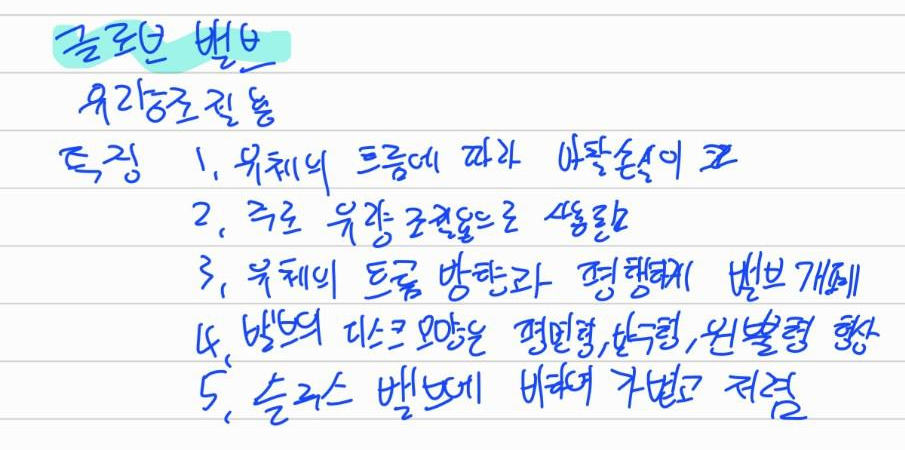 글로브 밸브
유량조절용
특징 1, 유체의 흐름에 따라 마찰손실이 크
2, 주로 유량조절용으로 사용됨
3, 유체의 흐름 방향과 평행하게 밸브 개폐
4, 밸브의 디스크 모양은 평면형, 반구형, 원뿔형 형상
5, 슬루스 밸브에 비하여 가볍고 저렴